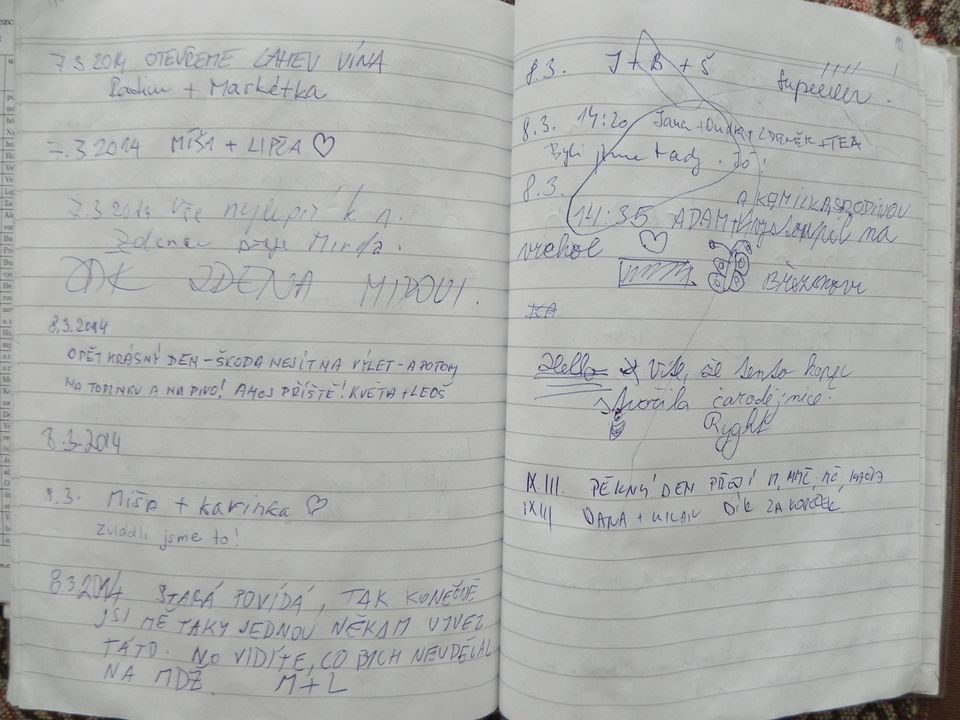 7.3.2014 OTEVŘEME LAHEV VÍNA
Radim + Markétka
7.3 2014 MÍŠA + LIPČA ♡
7.3 2014 Vše nejlepší k
Zdenu přeje Mirda.
ZDENA MIROVI.
8.3.2014
OPĚT KRÁSNÝ DEN - ŠKODA NEJÍT NA VÝLET - A POTOM
NA TOPINKU A NA PIVO! AHOJ PŘÍŠTĚ! KVĚTA + LEOŠ
8.3.2014
8.3. Míša + Karinka ♡
zvládli jsme to!
8.3.2014 STARÁ POVÍDÁ, TAK KONEČNĚ
JSI MĚ TAKY JEDNOU NĚKAM VYVEZ
TÁTO. NO VIDÍTE, CO BYCH NEUDĚLAL
NA MDŽ. M+L
8.3. J + B + Š
8.3. 14:20 Jana + + ZDENĚK + TEA
Byli jsme tady. Jo!
8.3.
A KAMILKA S RODINOU
14:35 ADAM + na
vrchol ♡
Hello Víte, že tento kopec
stvořila čarodějnice?
Ryght
IX.III. PĚKNÝ DEN PŘEJÍ
IX III DANA + MILAN DÍK ZA KOPEČEK.